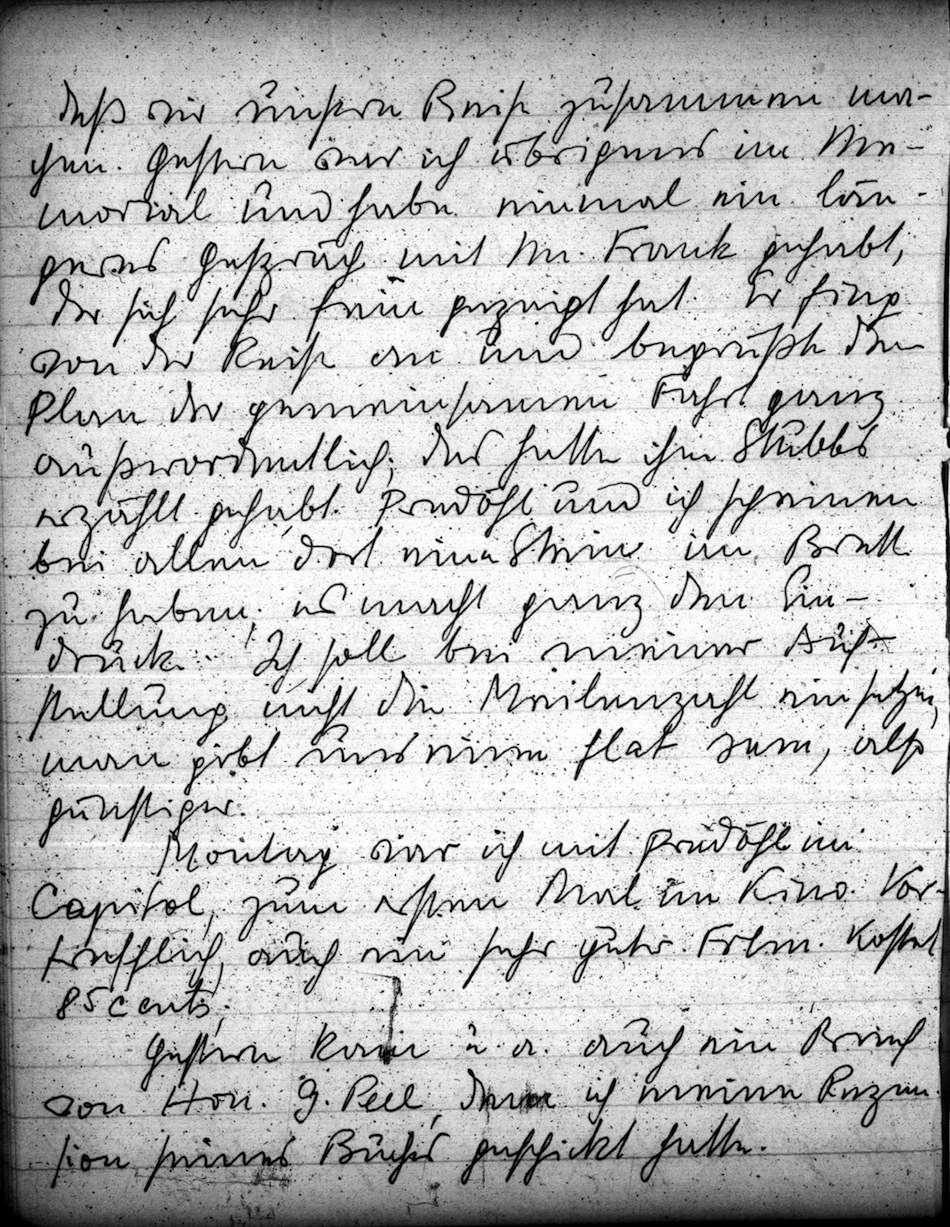 daß wir unsere Reise zusammen ma-
chen. Gestern war ich übrigens im Me-
morial und habe einmal ein län-
geres Gespräch mit Mr. Frank gehabt,
der sich sehr fein gezeigt hat. Er fing
von der Reise an und begrüßte den
Plan der gemeinsamen Fahrt ganz
außerordentlich; das hatte ihm Stubbs
erzählt gehabt. Predöhl und ich scheinen
bei allen dort einen Stein im Brett
zu haben, es macht ganz den Ein-
druck. Ich soll bei meiner Auf-
stellung nicht die Meilenzahl einsetzen,
man gibt uns einen flat sum, also
günstiger.
Montag war ich mit Predöhl im
Capitol, zum ersten Mal im Kino. Vor-
trefflich, auch ein sehr guter Film. Kostet
85 cents.
Gestern kam u. a. auch ein Brief
von Hon. G. Peel, dem ich meine Rezen-
sion seines Buches geschickt hatte.